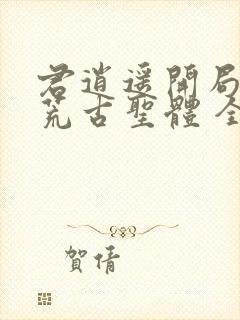 君逍遥開局
荒古聖體全
賀倩